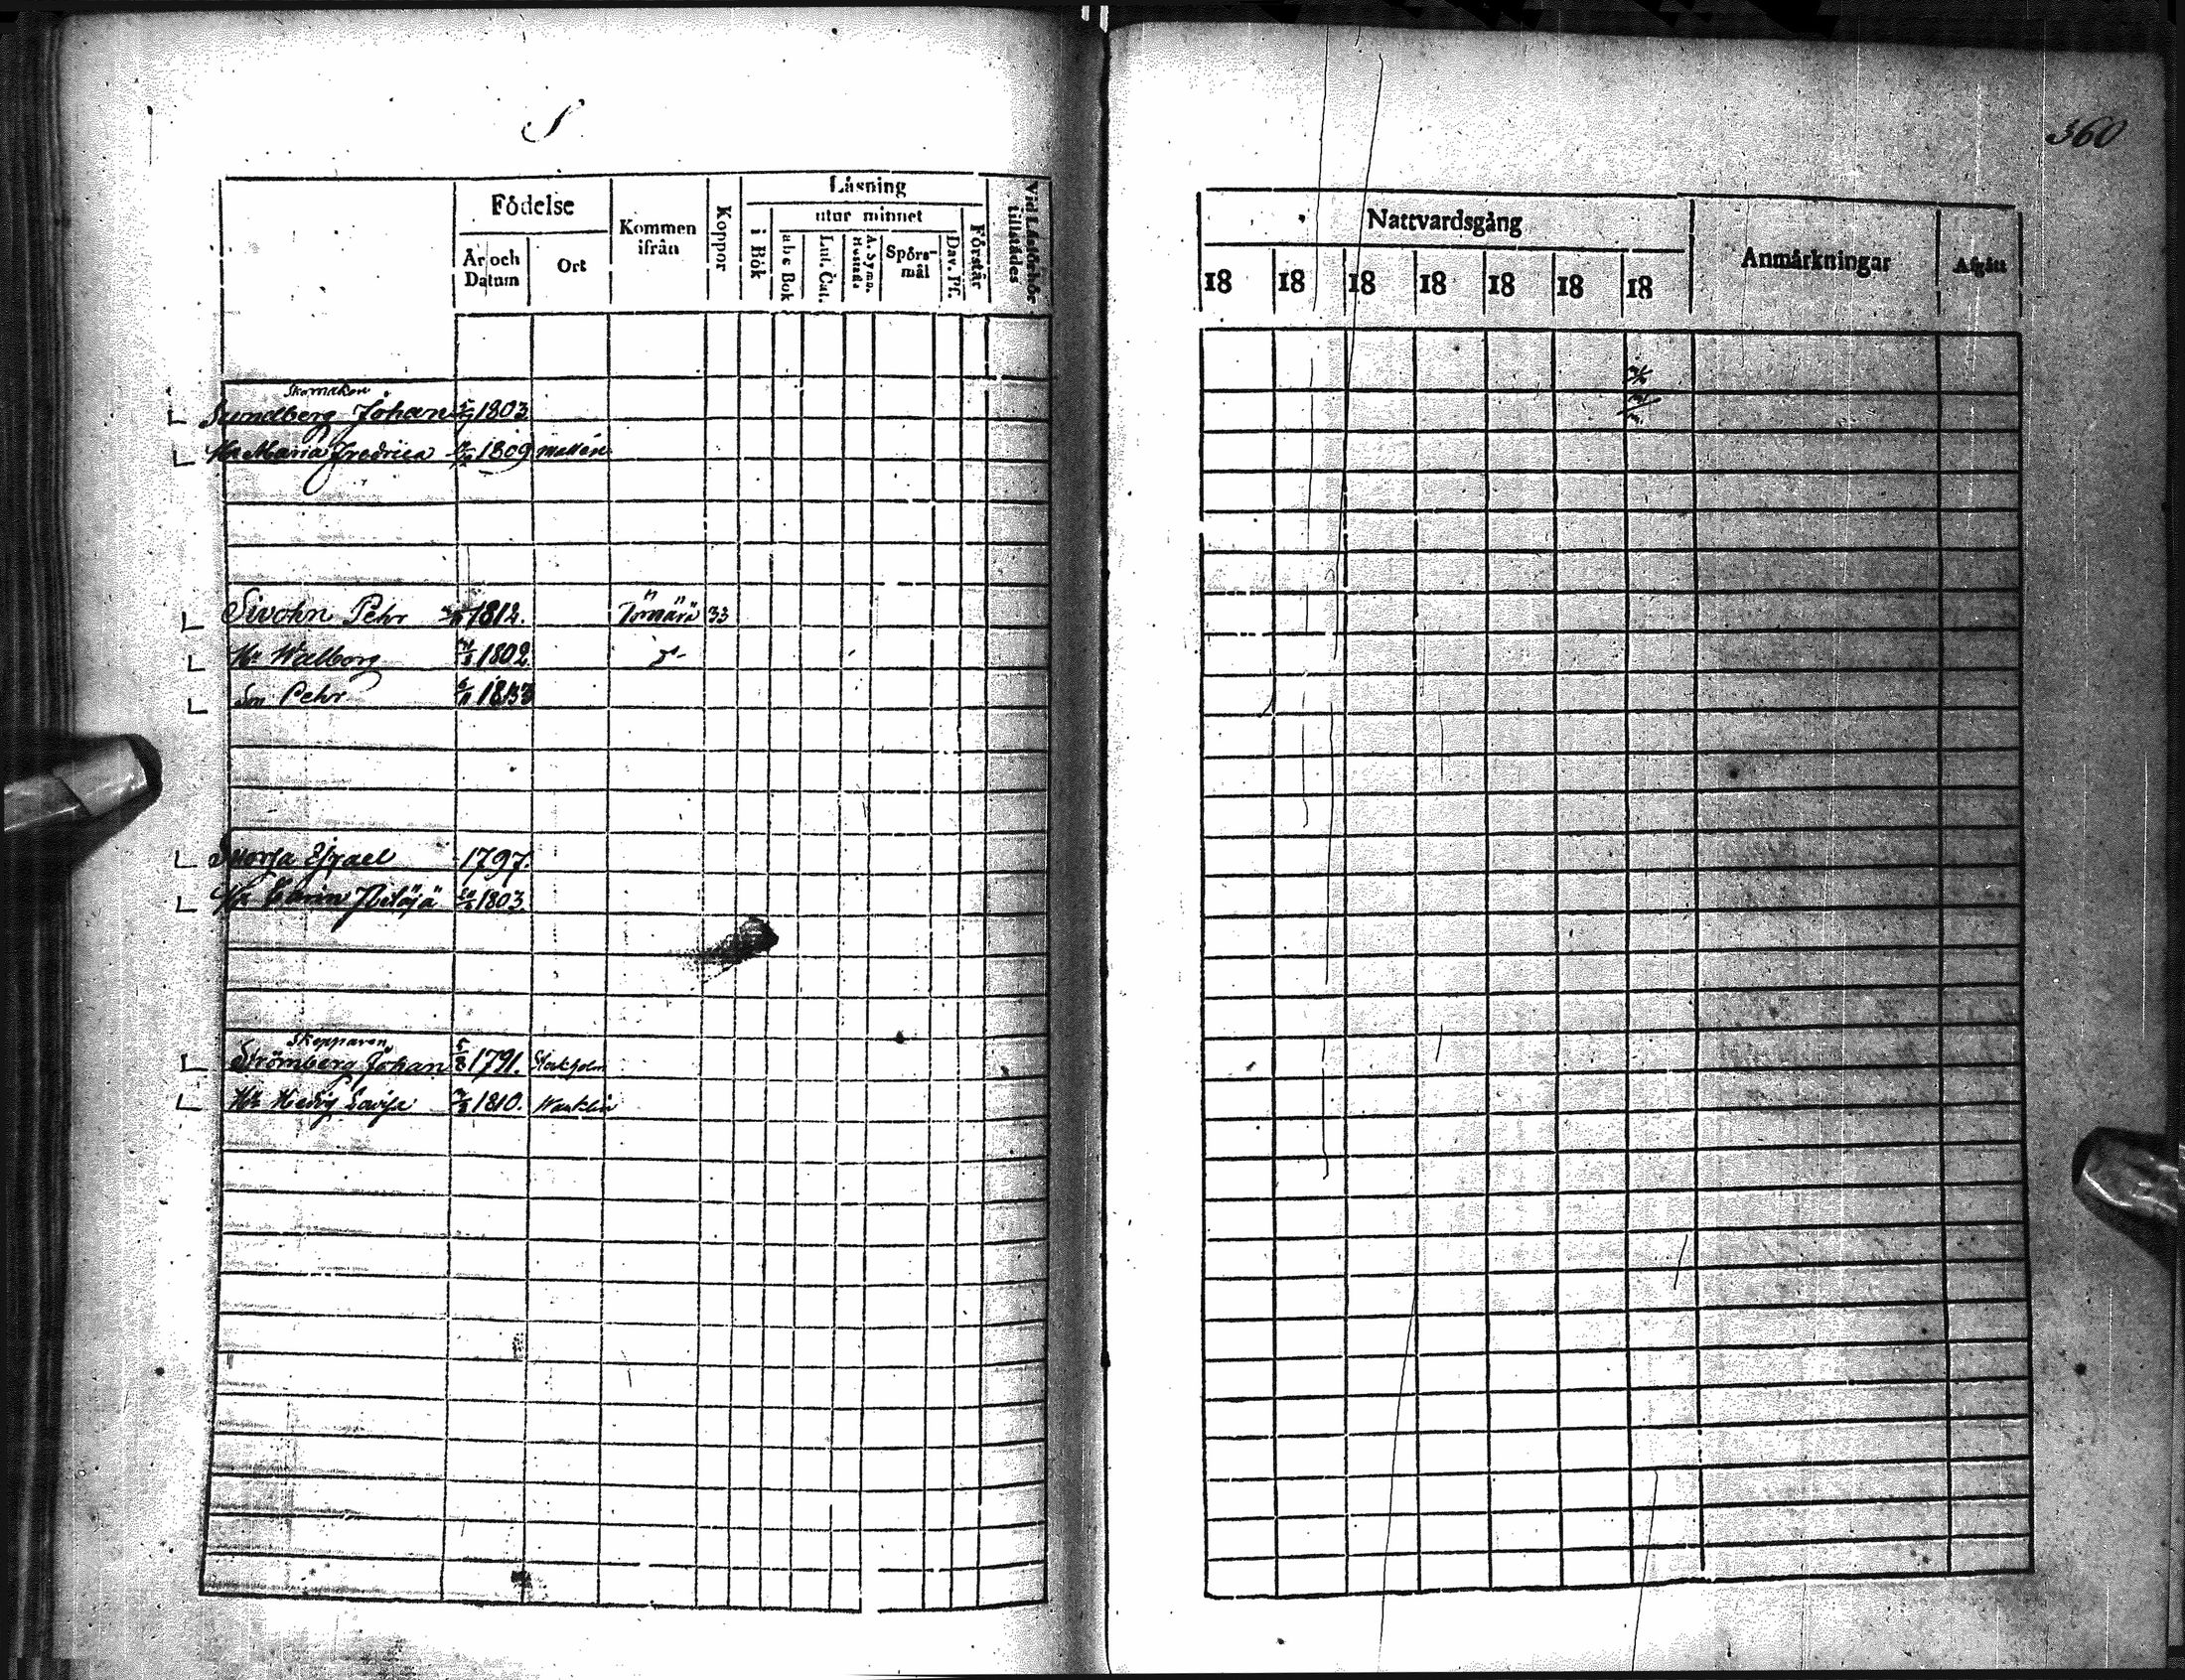 S
360
Födelse
Kommen ifrån
Koppor
Läsning
utur minnet
i Bok
abc Bok
Lut. Cat.
A. Symb.
Spörs-
mål
Dav. Ps.
Förstår
Vid Läsförhör tillstädes
År och
Datum
Ort
Nattvardsgång
Anmärkningar
Afgått
18 18 18 18 18 18 18
Skomakare
Sundberg Johan 1803
Hu Maria Fredrica 1809
Sivohn Pehr 1812. 33
Hu Walborg 1802
Son Pehr 1833
Israel 1797.
Hu 1803
Skepparen
Strömberg Johan 5/8 1791. Stockholm
Hu Hedvig Lovisa 1810.